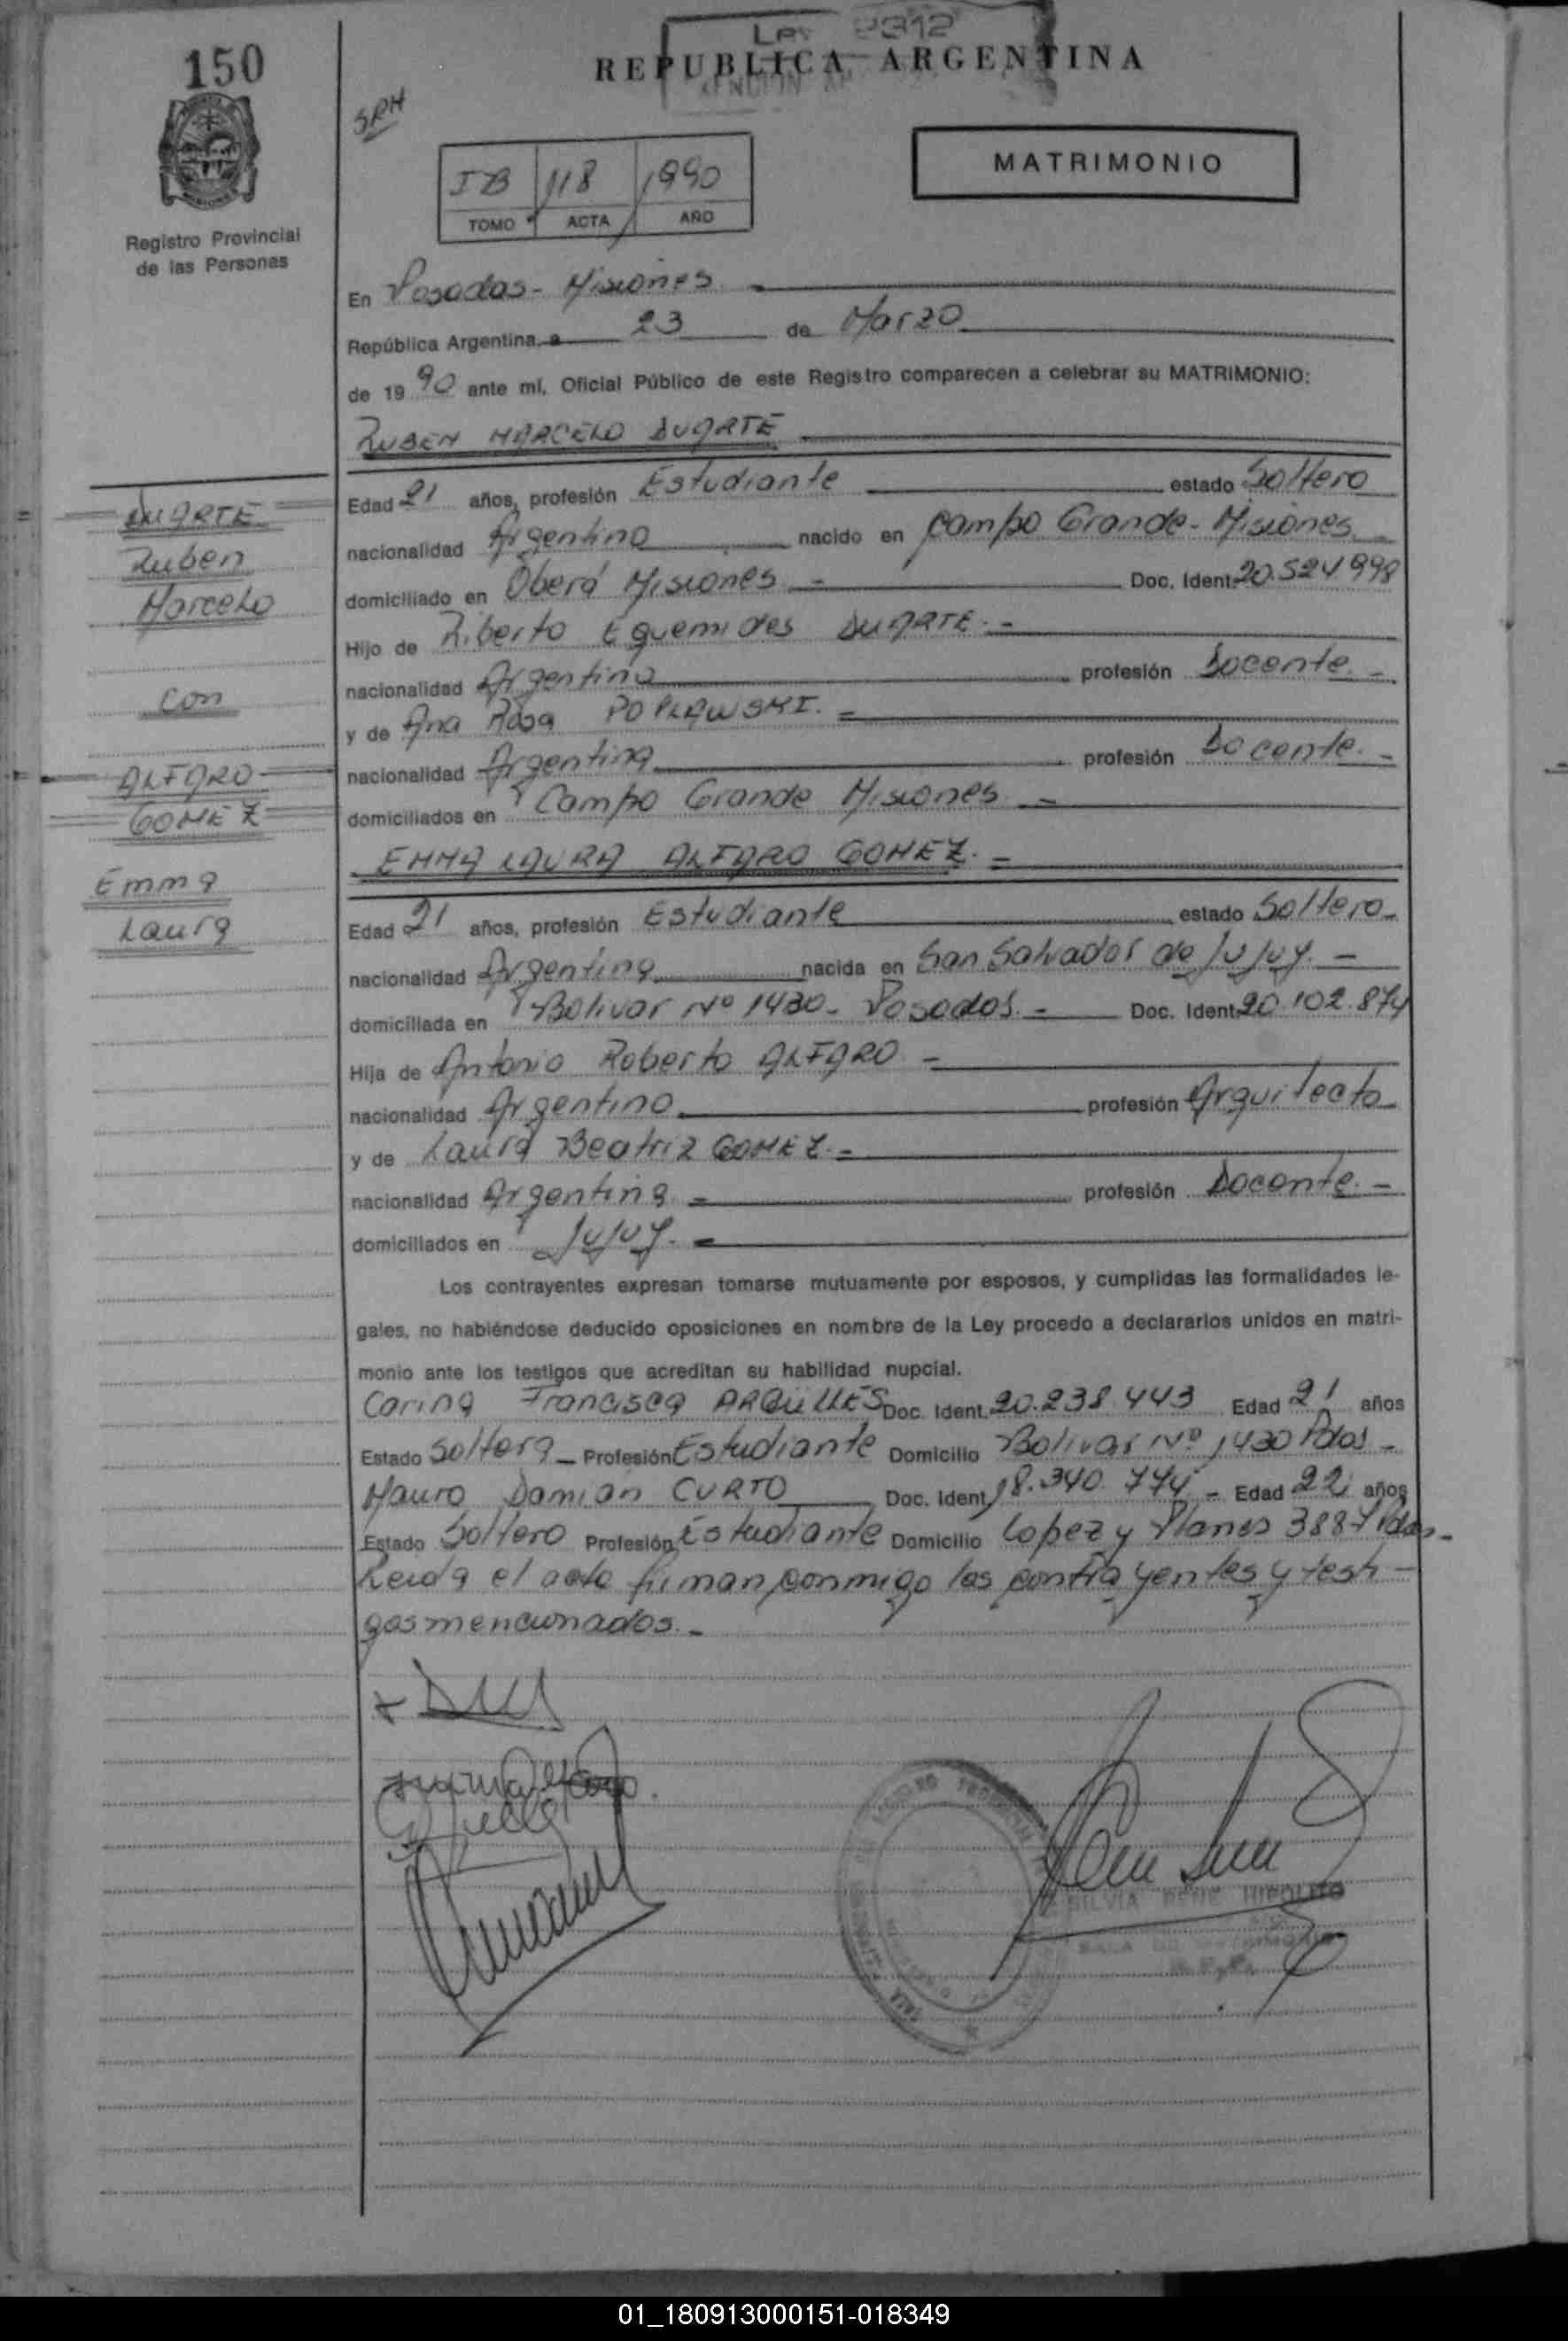 150
Ley 2312
REPUBLICA ARGENTINA
SRH
MATRIMONIO
IB 118 1990
TOMO ACTA AÑO
Registro Provincial
de las Personas
En Posadas - Misiones
República Argentina, a 23 de Marzo
de 1990 ante mí, Oficial Público de este Registro comparecen a celebrar su MATRIMONIO:
RUBEN MARCELO DUARTE
DUARTE
Ruben
Marcelo
con
ALFARO
GOMEZ
Emma
Laura
Edad 21 años, profesión Estudiante estado Soltero
nacionalidad Argentino nacido en Campo Grande - Misiones
domiciliado en Oberá Misiones - Doc. Ident. 20.524.998
Hijo de Riberto Equemides DUARTE. -
nacionalidad Argentino profesión Docente. -
y de Ana Rosa POPLAWSKI. -
nacionalidad Argentina profesión Docente. -
domiciliados en Campo Grande Misiones -
EMMA LAURA ALFARO GOMEZ. -
Edad 21 años, profesión Estudiante estado Soltera
nacionalidad Argentina nacida en San Salvador de Jujuy. -
domiciliada en Bolivar Nº 1430 - Posadas. - Doc. Ident. 20.102.874
Hija de Antonio Roberto ALFARO -
nacionalidad Argentino profesión Arquitecto
y de Laura Beatriz GOMEZ. -
nacionalidad Argentina - profesión Docente. -
domiciliados en Jujuy. -
Los contrayentes expresan tomarse mutuamente por esposos, y cumplidas las formalidades le-
gales, no habiéndose deducido oposiciones en nombre de la Ley procedo a declararlos unidos en matri-
monio ante los testigos que acreditan su habilidad nupcial.
Carina Francisca ARGÜLLES Doc. Ident. 20.238.443 Edad 21 años
Estado Soltera - Profesión Estudiante Domicilio Bolivar Nº 1430 Pdas -
Mauro Damián CURTO Doc. Ident. 18.340.774 - Edad 22 años
Estado Soltero Profesión Estudiante Domicilio Lopez y Planes 3887 Pdas -
Leida el acta firman conmigo los contrayentes y testi-
gos mencionados. -
SILVIA RENE HIPOLITO
SALA DE MATRIMONIO
01_180913000151-018349